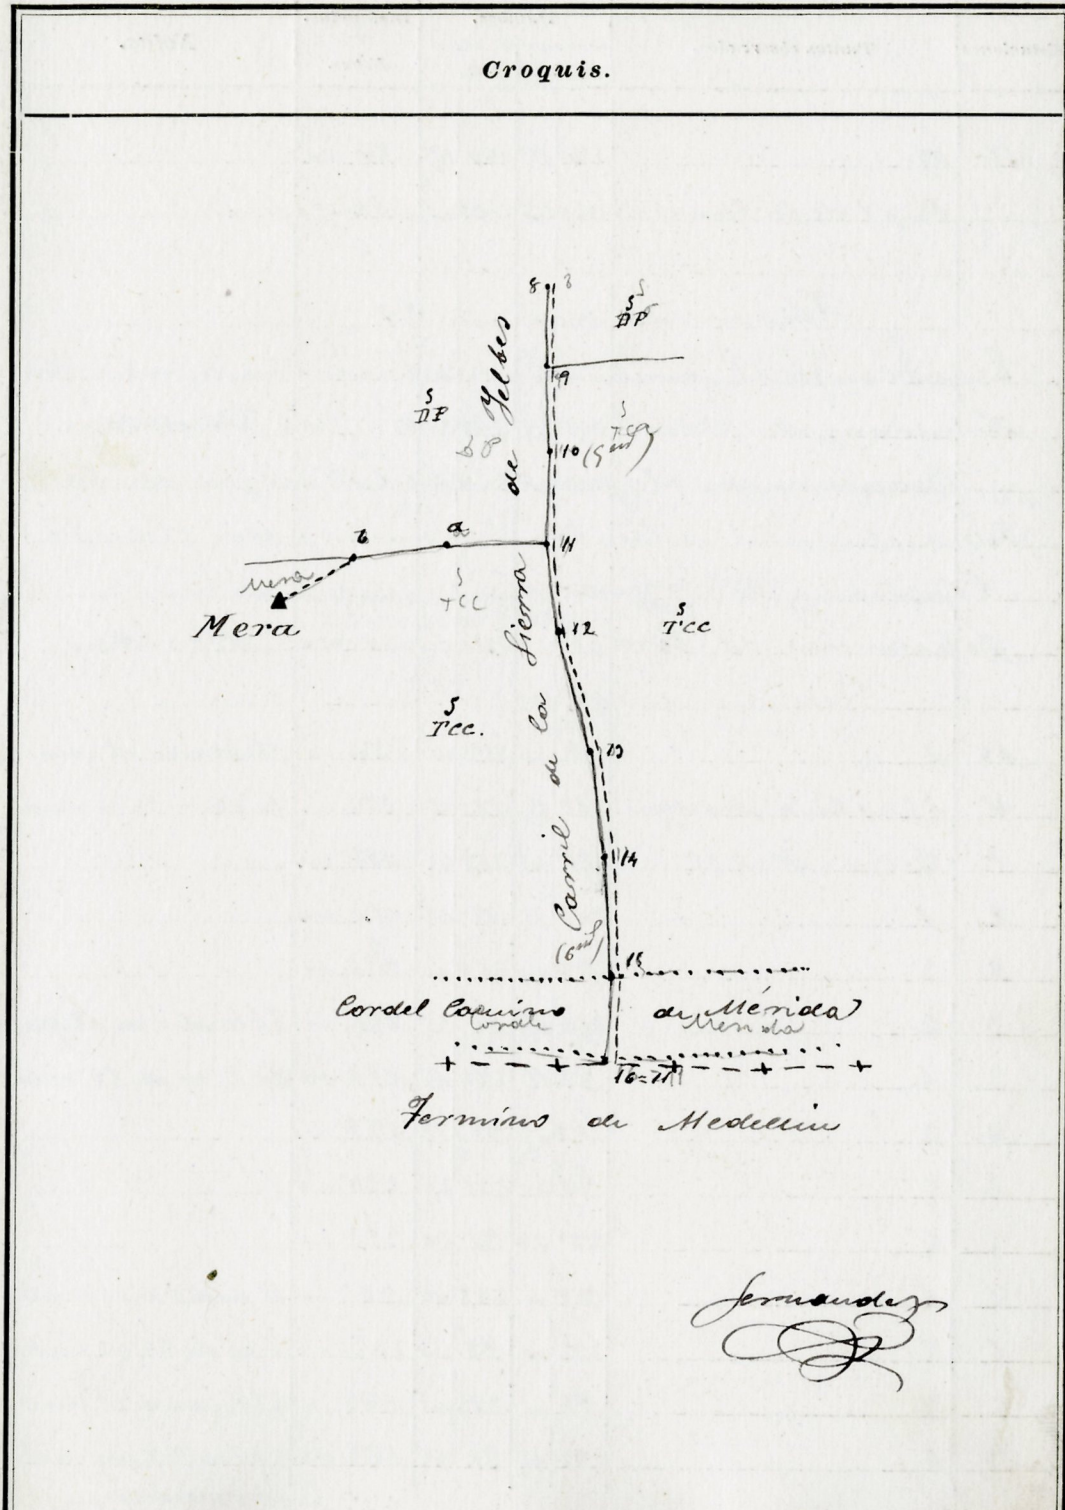 Croquis.
8
S
DP
9
S
DP
DP
10
(5 m)
S
TCC
Carril de la Sierra de Yelbes
b
a
11
Mera
Mera
S
TCC
12
S
TCC
S
TCC.
13
14
(6 m)
15
Cordel Camino de Mérida
Cordel
Merida
16=71
Termino de Medellin
Fernandez